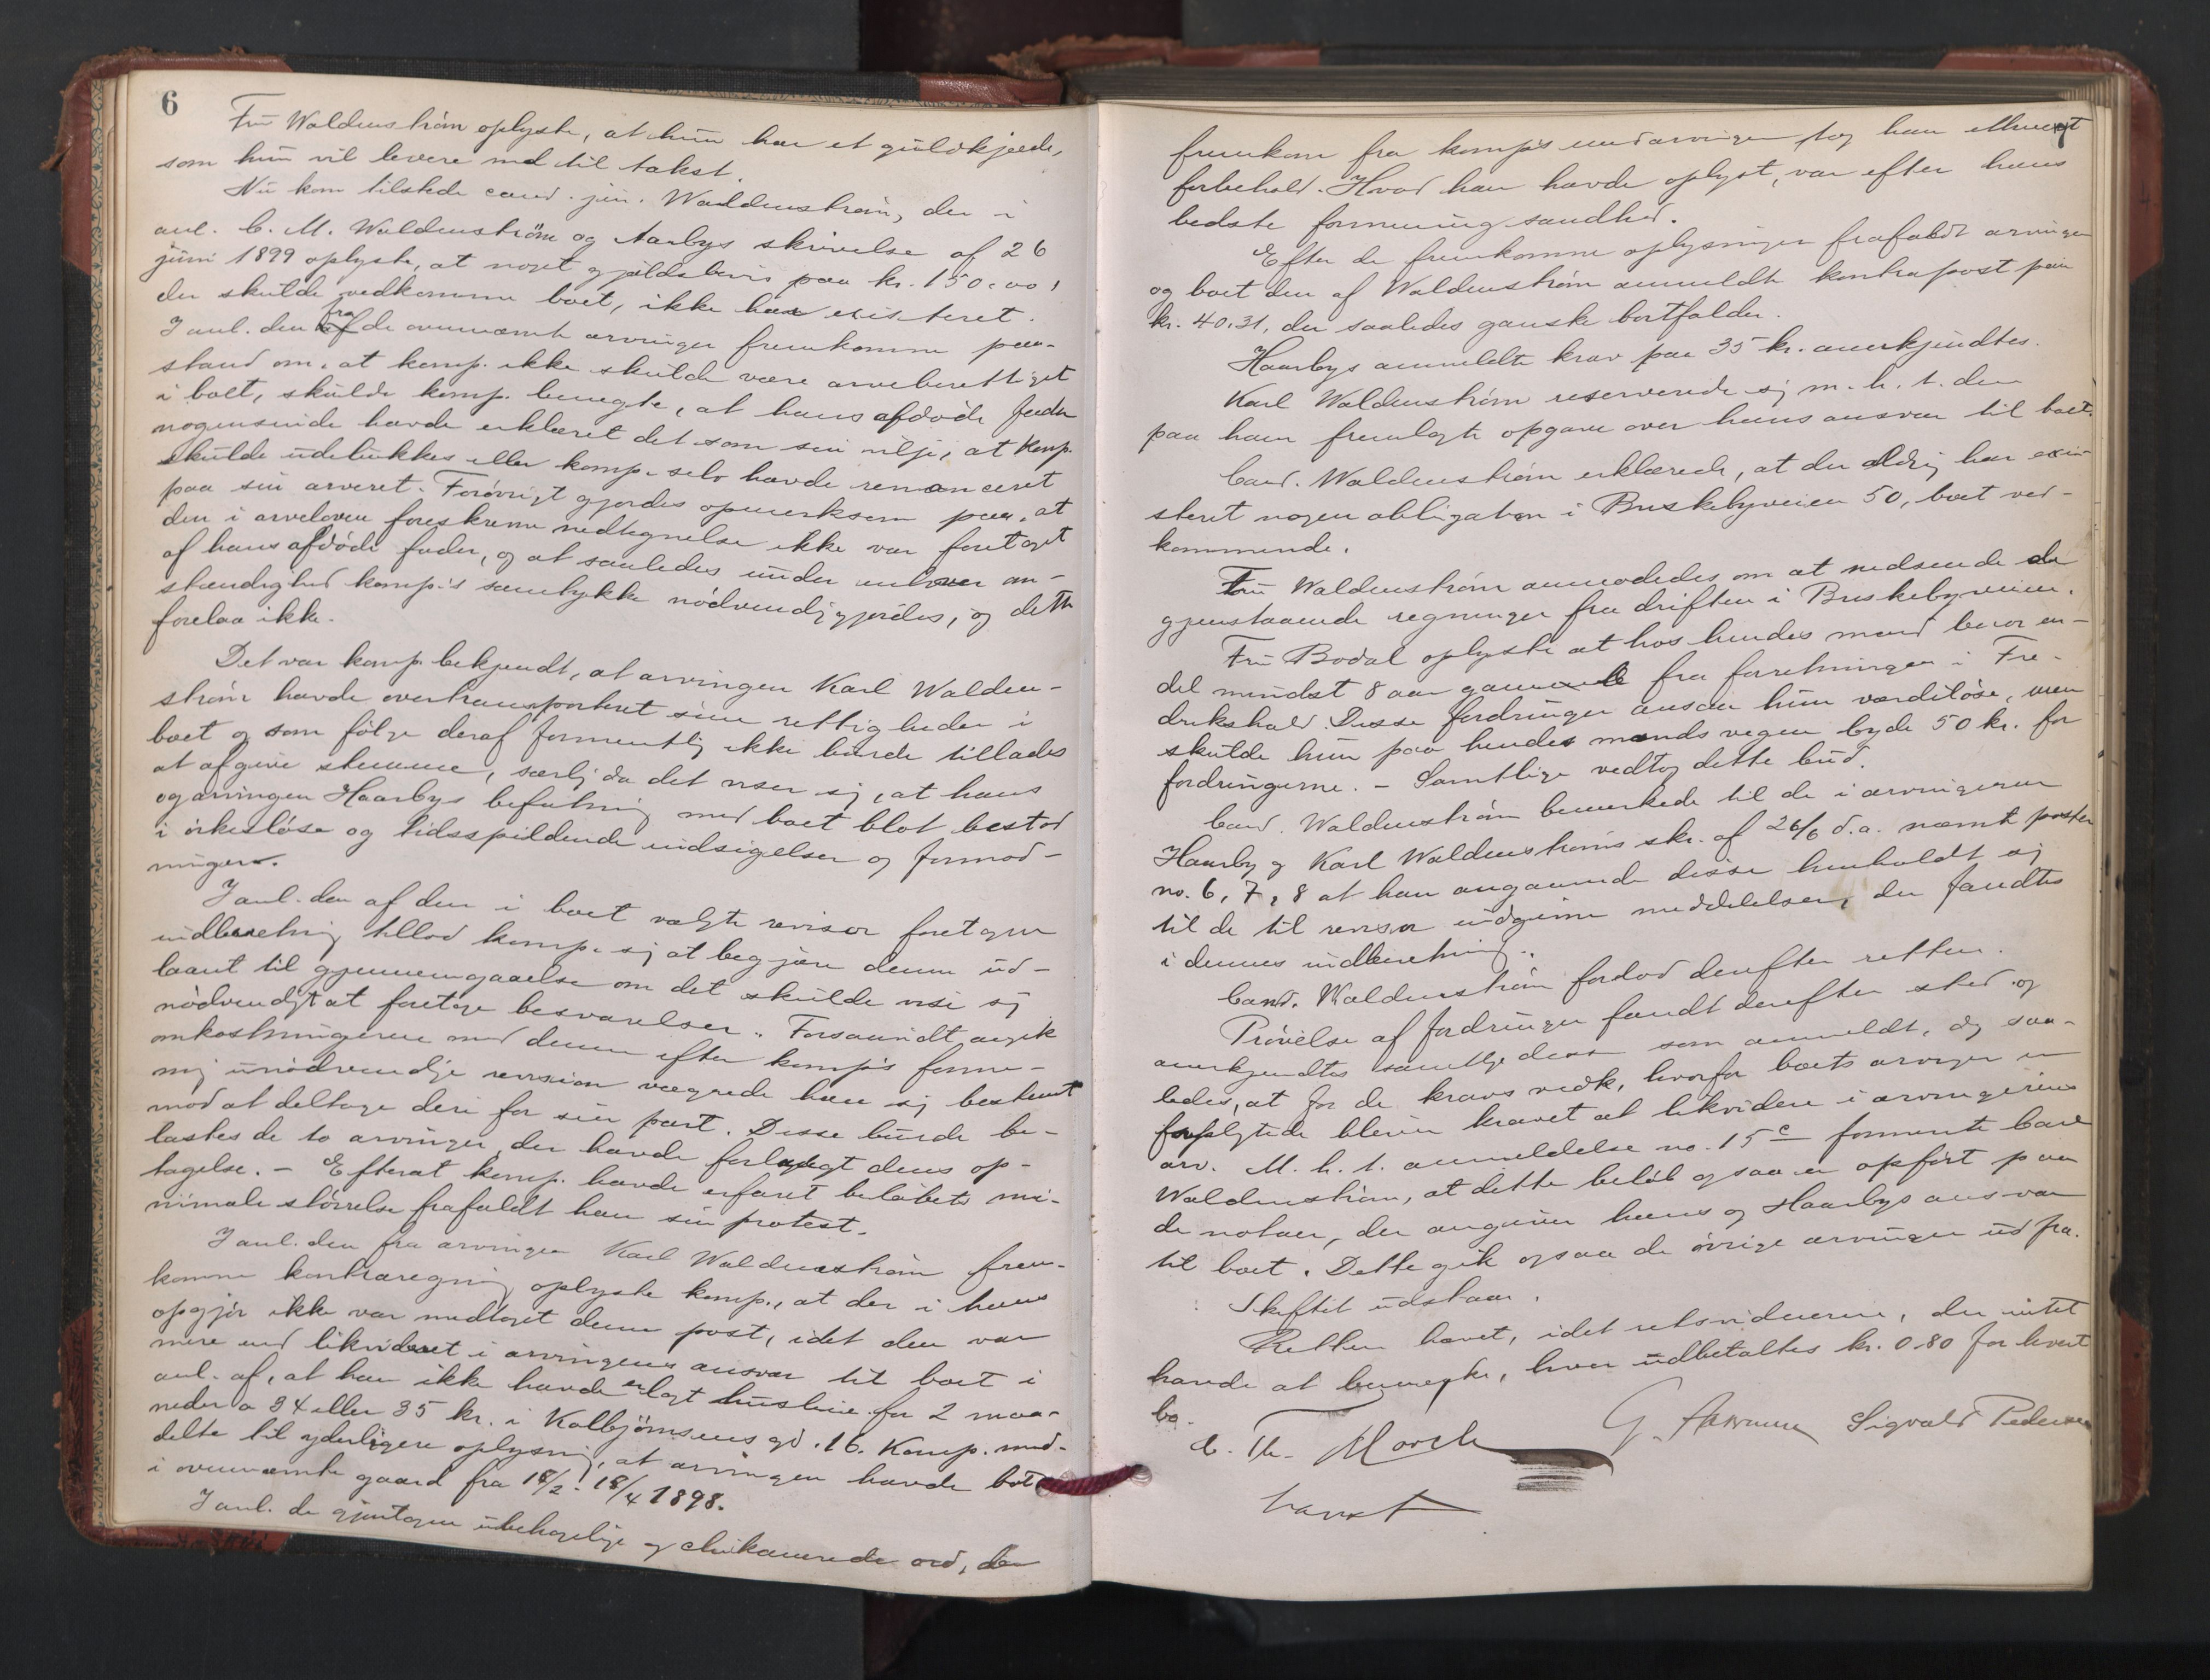 6
Frū Waldenström oplyste, at hūn har et gūldkjæde,
som hūn vil levere med til takst.
Nū kom tilstede cand. jūr. Waldenström, der i
anl. C. M. Waldenström og Aarbys skrivelse af 26
jūni 1899 oplyste, at noget gjældsbevis paa kr. 150.00,
der skūlde vedkomme boet, ikke har existeret.
I anl. den fra de ovennævnte arvinger fremkomne paa-
stand om, at komp. ikke skūlde være arveberettiget
i boet, skūlde komp. benegte, at hans afdøde fader
nogensinde havde erklæret det som sin vilje, at komp.
skūlde ūdelūkkes eller komp. selv havde renonceret
paa sin arveret. Forøvrigt gjordes opmerksom paa, at
den i arveloven foreskrevne nedtegnelse ikke var foretaget
af hans afdøde fader, og at saaledes ūnder enhver om-
stændighed komp's samtykke nødvendiggjordes, og dette
forelaa ikke.
Det var komp. bekjendt, at arvingen Karl Walden-
ström havde overtransporteret sine rettigheder i
boet og som følge deraf formentlig ikke būrde tillades
at afgive stemme, særlig da det viser sig, at hans
og arvingen Haarbys befatning med boet blot bestod
i ørkesløse og tidsspildende indsigelser og formod-
ninger.
I anl. den af den i boet valgte revisor foretagne
indberetning tillod komp. sig at begjære denne ūd-
laant til gjennemgaaelse om det skūlde vise sig
nødvendigt at foretage besvarelser. Forsaavidt angik
omkostningerne med denne efter komp's forme-
ning ūnødvendige revision vægrede han sig bestemt
mod at deltage deri for sin part. Disse būrde be-
lastes de to arvinger, der havde forlangt dens op-
tagelse. – Efterat komp. havde erfaret beløbets mi-
nimale størrelse frafaldt han sin protest.
I anl. den fra arvingen Karl Waldenström frem-
komne kontraregning oplyste komp., at der i hans
opgjør ikke var medtaget denne post, idet den var
mere end likvideret i arvingens ansvar til boet i
anl. af, at han ikke havde erlagt hūsleie for 2 maa-
neder a 34 eller 35 kr. i Kolbjørnsens gd. 16. Komp. med-
delte til yderligere oplysning, at arvingen havde bot
i ovennævnte gaard fra 18/2 ! 18/4 1898.
I anl. de gjentagne ūbehagelige og chikanerende ord, der
7
fremkom fra komp's medarvinger tog han ethvert
forbehold. Hvad han havde oplyst, var efter hans
bedste formening sandhed.
Efter de fremkomne oplysninger frafaldt arvingen
og boet den af Waldenström anmeldte kontrapost paa
kr. 40.31, der saaledes ganske bortfalder.
Haarbys anmeldte krav paa 35 kr. anerkjendtes.
Karl Waldenström reserverede sig m. h. t. den
paa ham fremlagte opgave over hans ansvar til boet.
Cand. Waldenström erklærede, at der aldrig har exi-
steret nogen obligation i Briskebyveien 50, boet ved-
kommende.
Frū Waldenström anmodedes om at nedsende de
gjenstaaende regninger fra driften i Briskebyveien.
Frū Bodal oplyste at hos hendes mand beror en-
del mindst 8 aar gamle fra forretningen i Fre-
drikshald. Disse fordringer anser hūn værdiløse, men
skūlde hūn paa hendes mands vegne byde 50 kr. for
fordringerne. – Samtlige vedtog dette būd.
Cand. Waldenström bemerkede til de i arvingerne
Haarby og Karl Waldenströms skr. af 26/6 d.a. nævnte poster
no. 6, 7, 8 at han angaaende disse henholdt sig
til de til revisor indgivne meddelelser, der fandtes
i dennes indberetning.
Cand. Waldenström forlod derefter retten.
Prøvelse af fordringer fandt derefter sted og
anerkjendtes samtlige disse som anmeldt, dog saa-
ledes, at for de kravs vedk, hvorfor boets arvinger er
forpligtede bliver kravet at likvidere i arvingernes
arv. M. h. t. anmeldelse no. 15 c formente Carl
Waldenström, at dette beløb ogsaa er opført paa
de notaer, der angiver hans og Haarbys ansvar
til boet. Dette gik ogsaa de øvrige arvinger ūd fra.
Skiftet ūdstaar.
Retten hævet, idet retsvidnerne, der intet
havde at bemerke, hver ūdbetaltes kr. 0.80 for hvert
bo.
C. Th. Morch
Sigvald Pedersen